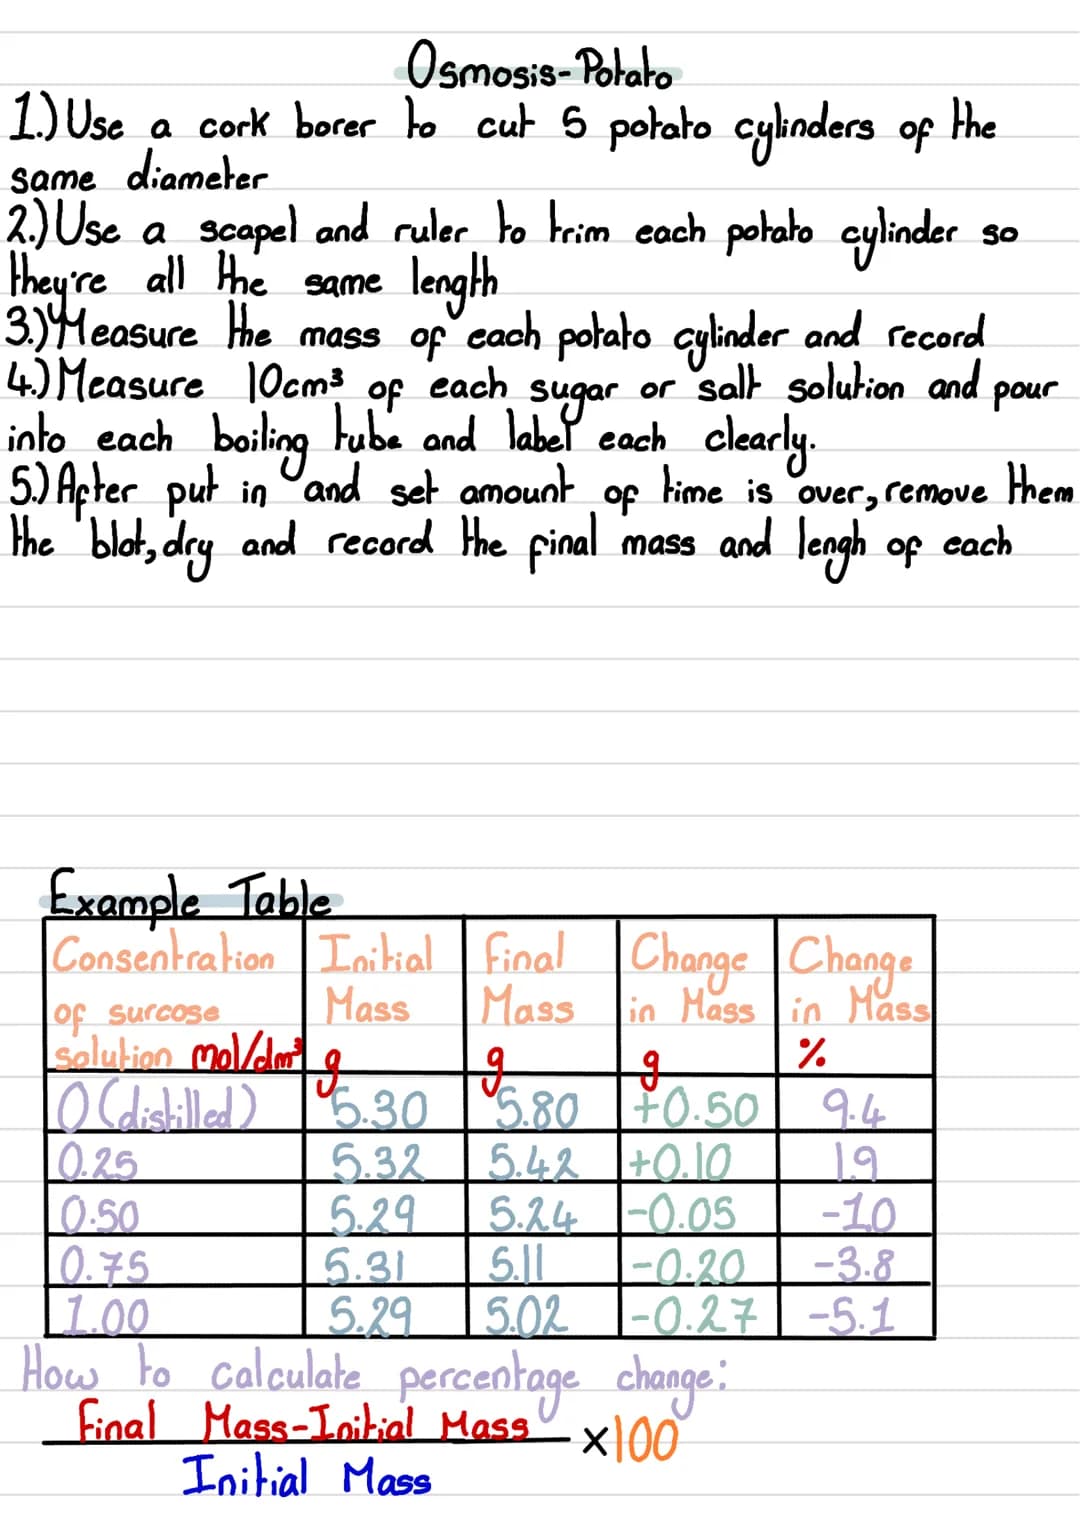 Osmosis-Potato
1.) Use a cork borer to cut 5 potato cylinders of the
same diameter
2.) Use a scapel and ruler to trim each potato cylinder so
they're all the same length
3.) Measure the mass of each potato cylinder and record
4.) Measure 10cm³ of each sugar or salt solution and pour
into each boiling tube and label each clearly.
5.) After put in and set amount of time is over, remove them
the blot, dry and record the final mass and lengh of each
Example Table
Consentration of surcose solution mol/dm³ | Initial Mass g | Final Mass g | Change in Mass g | Change in Mass %
0 (distilled) 5.30 5.80 +0.50 9.4
0.25 5.32 5.42 +0.10 1.9
0.50 5.29 5.24 -0.05 -1.0
0.75 5.31 5.11 -0.20 -3.8
1.00 5.29 5.02 -0.27 -5.1
How to calculate percentage change:
Final Mass-Initial Mass x100
Initial Mass